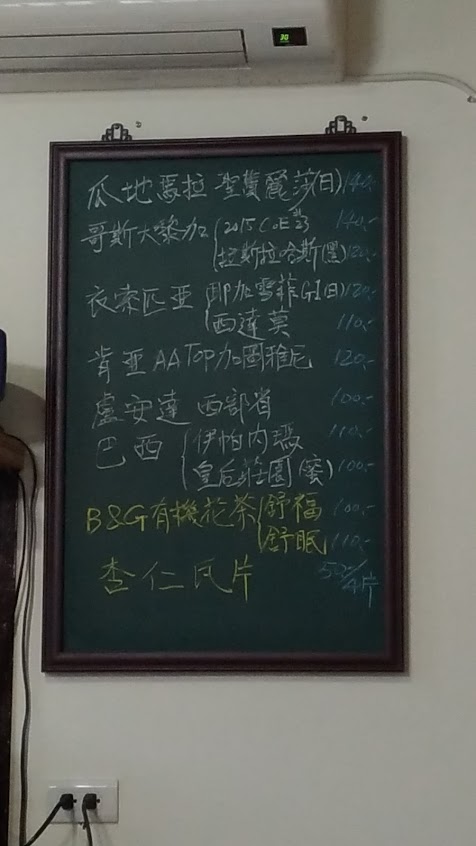 瓜地馬拉 聖費麗莎(日) 140.-
哥斯大黎加 2015 CoE #23 140.-
拉斯拉哈斯(黑) 120.-
衣索匹亞 耶加雪菲G1(日) 120.-
西達莫 110.-
肯亞AA TOP加圖雅尼 120.-
盧安達 西部省 100.-
巴西 伊帕內瑪 110.-
皇后莊園(蜜) 100.-
B&G有機花茶 舒福 100.-
舒眠 110.-
杏仁瓦片 50/4片